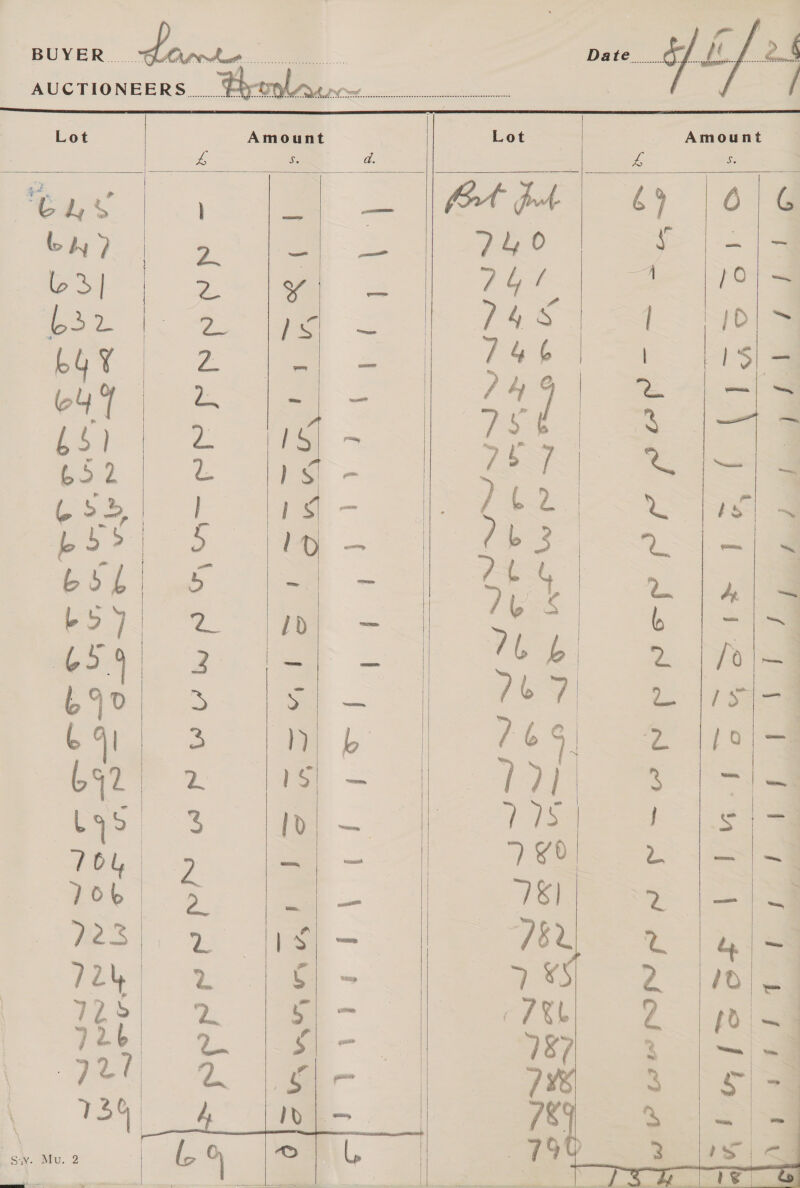 BUYER Lane Date 8/11/26
AUCTIONEERS Hodson
Lot Amount
£ s. d.
645 1 — —
647 2 — —
631 2 8 —
632 2 15 —
648 2 — —
649 2 — —
651 2 15 —
652 2 15 —
653 1 15 —
655 5 10 —
656 5 — —
657 2 10 —
659 3 — —
690 3 5 —
691 3 17 6
692 2 15 —
695 3 10 —
704 2 — —
706 2 — —
723 2 15 —
724 2 5 —
725 2 5 —
726 2 5 —
727 2 5 —
739 4 10 —
69 0 6
S.V. Mu. 2
Lot Amount
£ s.
Brt Fwd 69 0 6
740 5 — —
741 1 10 —
745 1 10 —
746 1 15 —
749 2 — —
756 3 — —
757 2 — —
762 2 15 —
763 2 — —
764 2 4 —
765 6 — —
766 2 10 —
767 2 15 —
769 2 10 —
771 3 — —
775 1 5 —
780 2 — —
781 2 — —
782 2 4 —
785 2 10 —
786 2 10 —
787 3 — —
788 3 5 —
789 3 — —
790 3 15 —
134 18 6